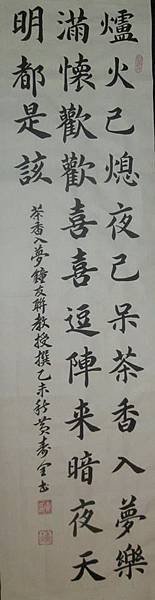 爐火已熄夜已呆茶香入夢樂
滿懷歡歡喜喜逗陣来暗夜天
明都是該
茶香入夢鐘友聯教授撰乙未秋黃壽全书